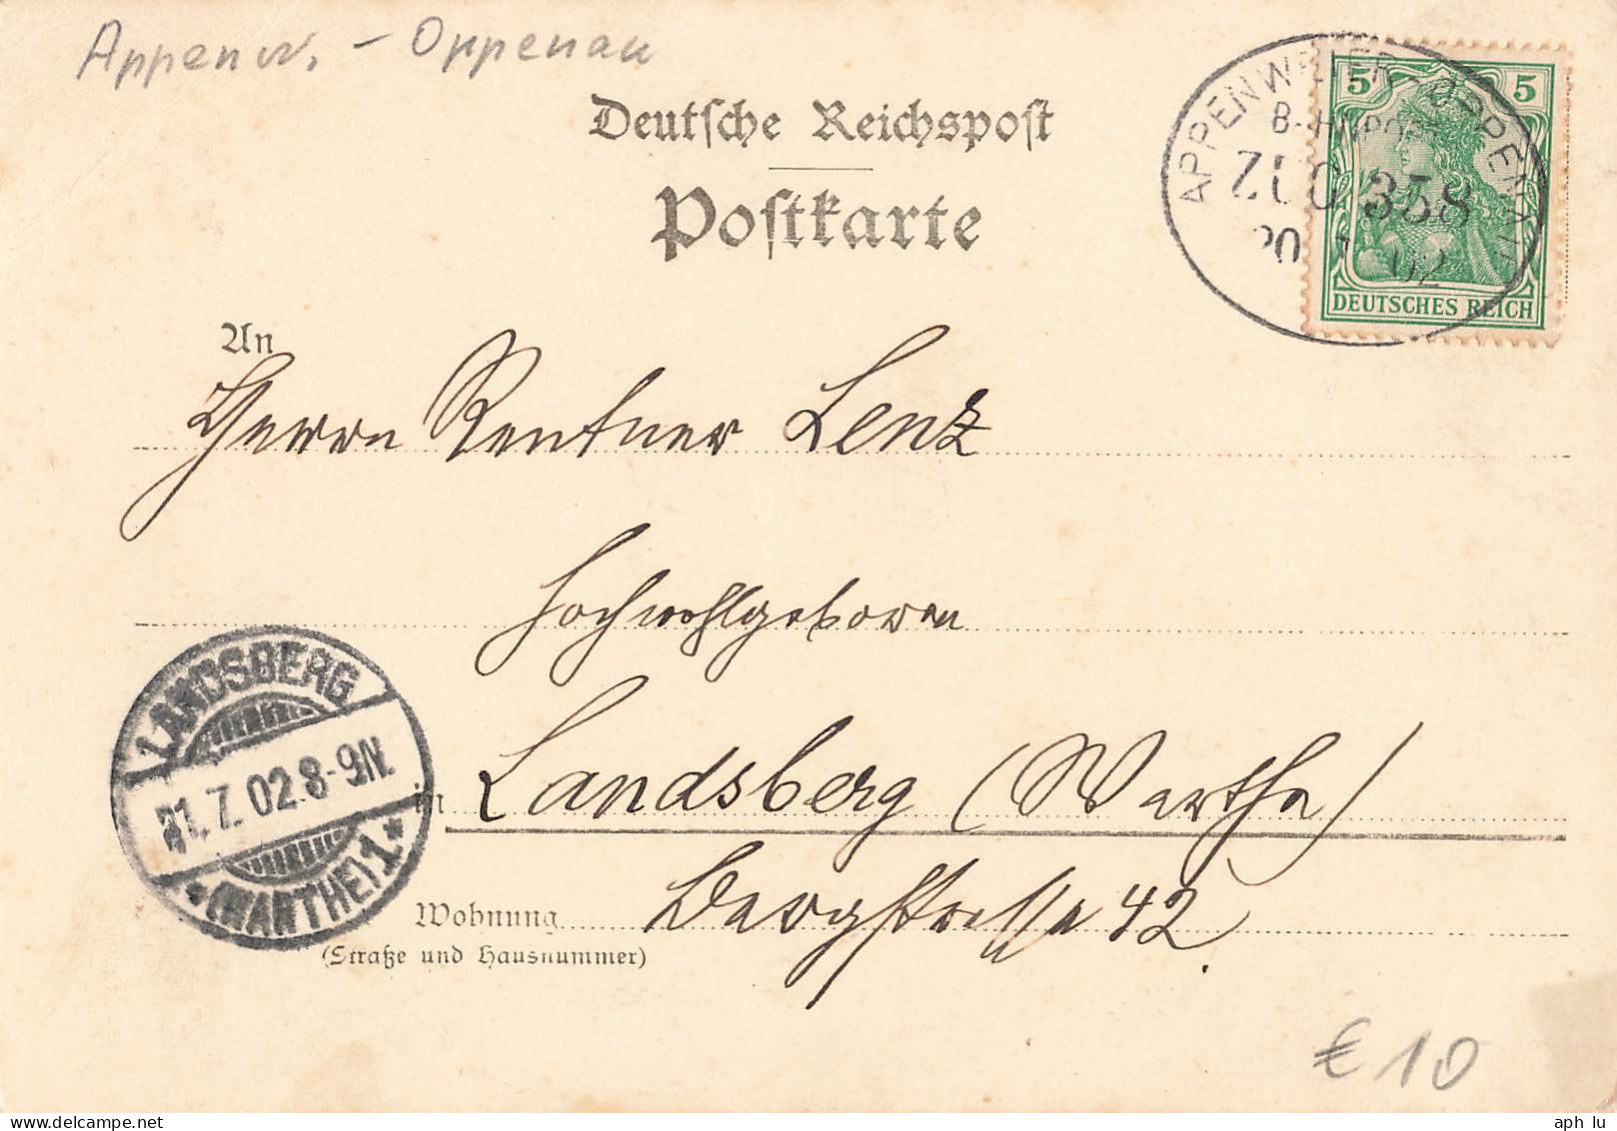 Appenw. – Oppenau
Deutsche Reichspost
Postkarte
5 5
DEUTSCHES REICH
APPENWEIER OPPENAU
BAHNPOST
ZUG 358
20 7 02
An
Herrn Rentner Lenz
Hochwohlgeboren
in Landsberg (Warthe)
LANDSBERG
21.7.02.8-9N.
*(WARTHE)1.*
Wohnung Bergstrasse 42.
(Straße und Hausnummer)
€ 10
aph lu